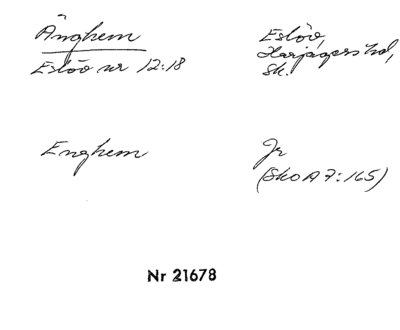 Änghem
Eslöv nr 12:18
Eslöv,
Harjagers hd,
Sk.
Enghem
Jr
(Sko A 7:165)
Nr 21678